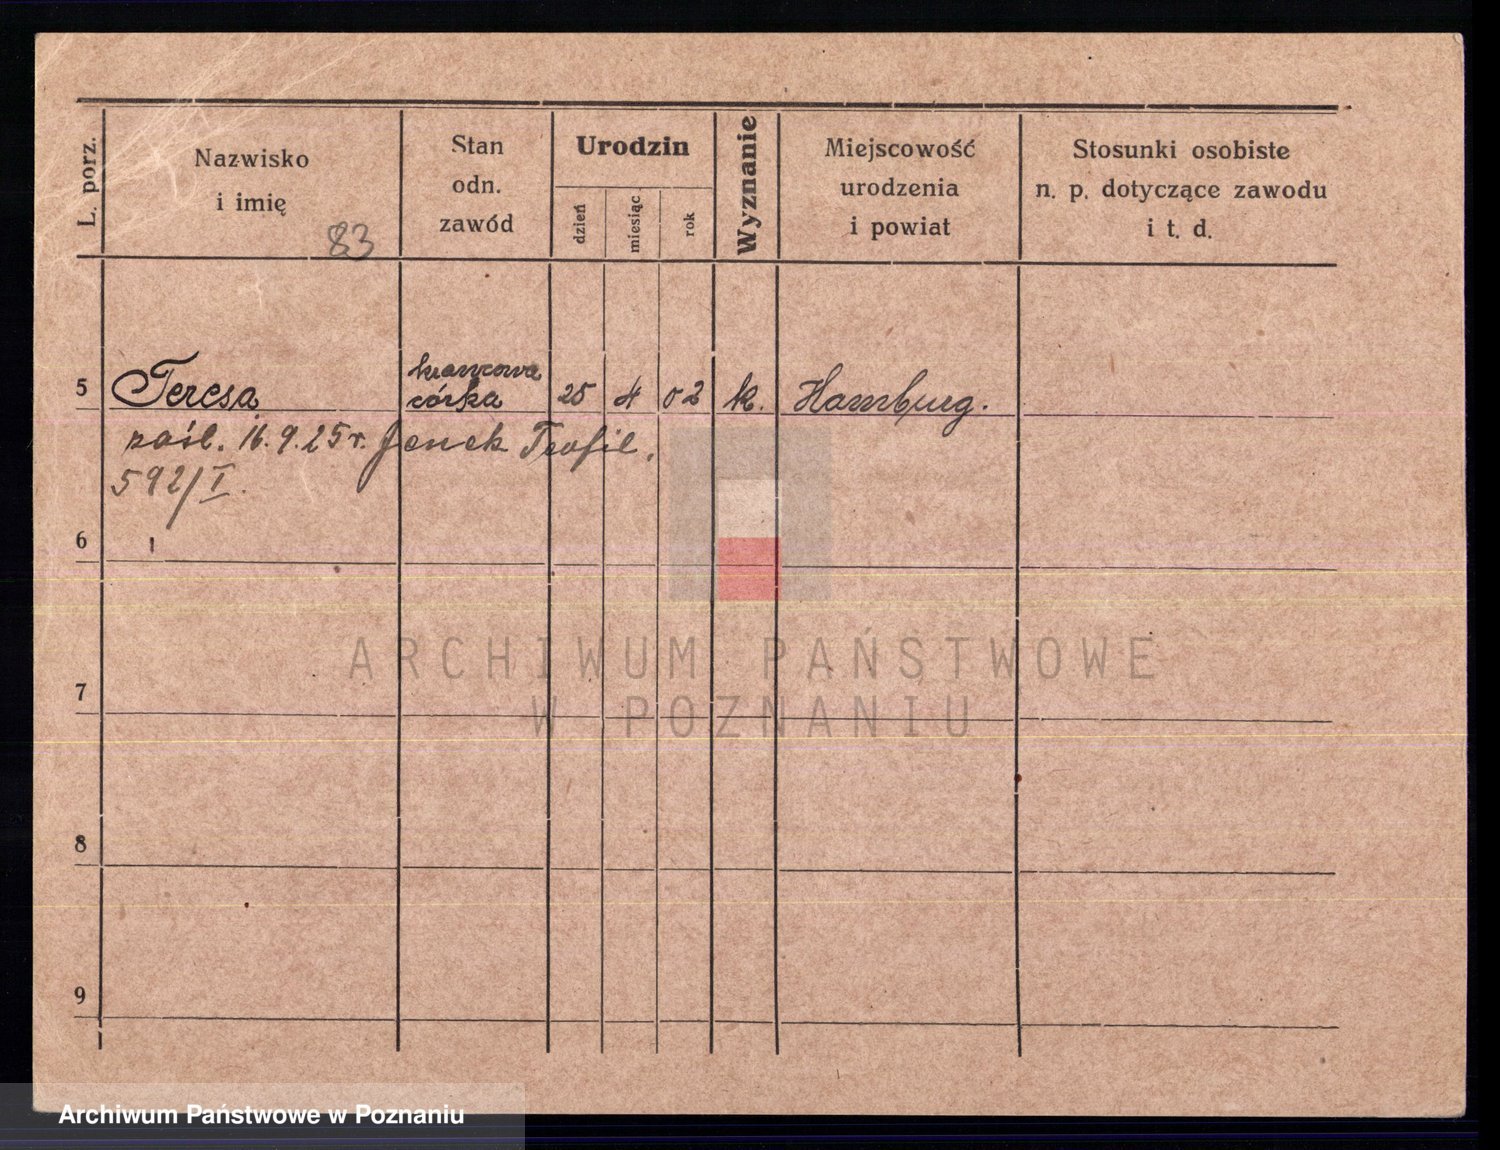 L. porz.
Nazwisko
i imię
83
Stan
odn.
zawód
Urodzin
dzień
miesiąc
rok
Wyznanie
Miejscowość
urodzenia
i powiat
Stosunki osobiste
n. p. dotyczące zawodu
i t. d.
5 Teresa krawcowa córka 25 4 02 k. Hamburg.
zaśl. 16.9.25 r. Jenek Teofil.
592/I.
6
7
8
9
ARCHIWUM PAŃSTWOWE
W POZNANIU
Archiwum Państwowe w Poznaniu